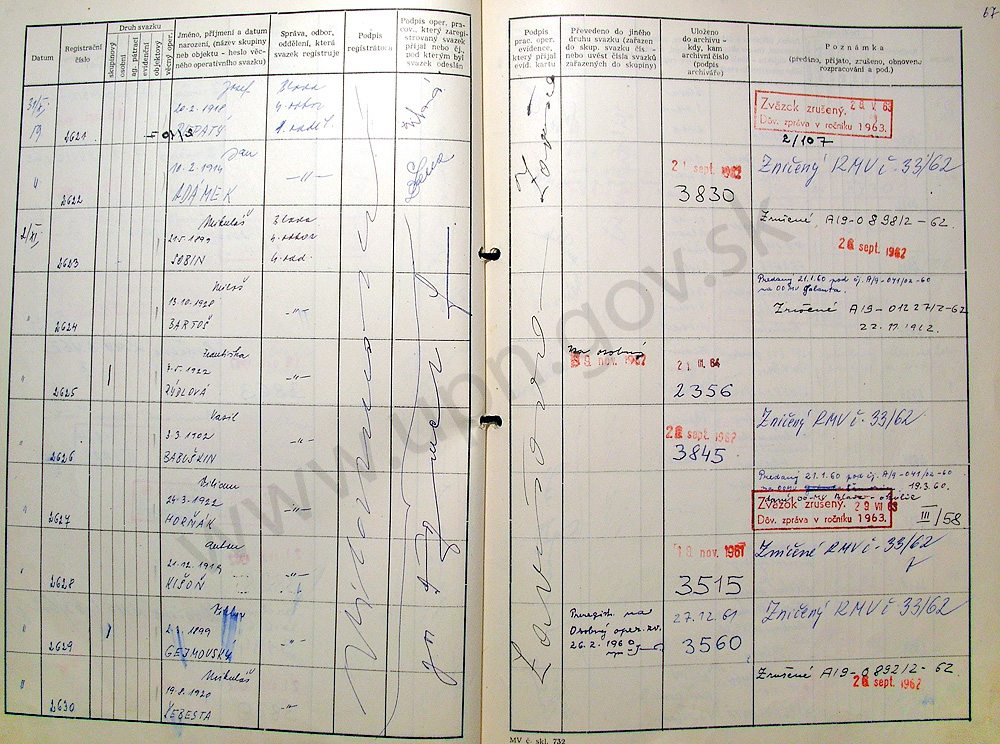 67
Datum
Registrační číslo
Druh svazku
skupinový
osobní
ag. pátrací
evidenční
objektový
věcný oper.
Jméno, příjmení a datum narození, (název skupiny neb objektu - heslo věcného operativního svazku)
Správa, odbor, oddělení, která svazek registruje
Podpis registrátora
Podpis oper. prac., který zaregistrovaný svazek přijal nebo čj., pod kterým byl svazek odeslán
Podpis prac. oper. evidence, který přijal evid. kartu
Převedeno do jiného druhu svazku (zařazen do skup. svazku čís. - nebo uvést čísla svazků zařazených do skupiny)
Uloženo do archivu - kdy, kam archivní číslo (podpis archiváře)
Poznámka
(předáno, přijato, zrušeno, obnoveno rozpracování a pod.)
Josef
20.2.1918
2621
4. odbor
Zväzok zrušený.
Dôv. zpráva v ročníku 1963.
2/107
Jan
10.2.1914
ADÁMEK
2622
-"-
21 sept. 1962
3830
Zničený RMV č. 33/62
Mikuláš
2623
4. odbor
4. odd.
Zrušené A19-0898/2-62.
26 sept. 1962
Miloš
13.10.1928
BARTOŠ
2624
-"-
Predaný 21.1.60 pod čj. A/9-041/02-60
na OOMV Galanta.
Zrušené A19-01227/2-62
22.11.1962.
Františka
3.5.1922
2625
-"-
Na osobný
nov. 1962
21 III. 64
2356
Vasil
3.3.1902
BABUŠKIN
2626
-"-
sept. 1962
3845
Zničený RMV č. 33/62
Viliam
24.3.1922
HORŇÁK
2627
-"-
Predaný 21.1.60 pod čj. A/9-041/02-60
19.3.60.
Zväzok zrušený. 29 VII 63
Dôv. zpráva v ročníku 1963.
III/58
21.12.1919
2628
-"-
nov. 1961
3515
Zničené RMV č. 33/62
1899
GEJMOVSKÝ
2629
-"-
Preregist. na
Osobný oper. zv.
26.2.1960
27.12.61
3560
Zničený RMV č. 33/62
Mikuláš
19.8.1920
ŠEBESTA
2630
-"-
Zrušené A19-0892/2-62
26 sept. 1962
MV č. skl. 732
www.upn.gov.sk